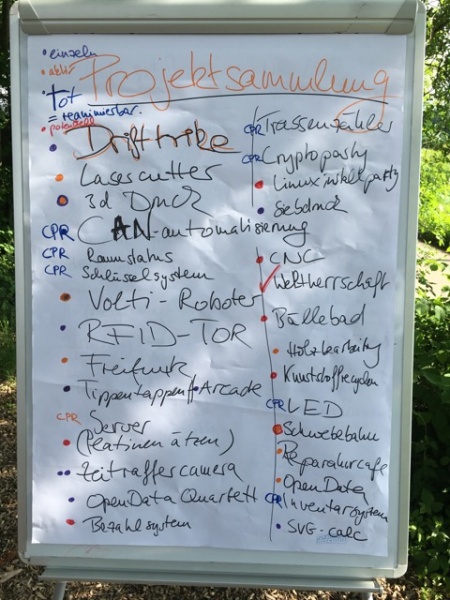 einzeln
aktiv
Projektsammlung
tot
= reanimierbar.
potentiell
Drifttrike
Lasercutter
3d Druck
CPR CAN-automatisierung
CPR Raumstatus
CPR Schlüsselsystem
Volti-Roboter
RFID-TOR
Freifunk
Tippentappen/Arcade
CPR Server
(Platinen ätzen)
Zeitraffercamera
OpenData Quartett
Bezahlsystem
CPR Trassenzähler
CPR Cryptoparty
Linuxinstallparty
Siebdruck
CNC
Weltherrschaft
Bällebad
Holzbearbeitung
Kunststoffrecyclen
CPR LED
Schwebebahn
Reparaturcafe
OpenData
CPR Inventarsystem
SVG-calc